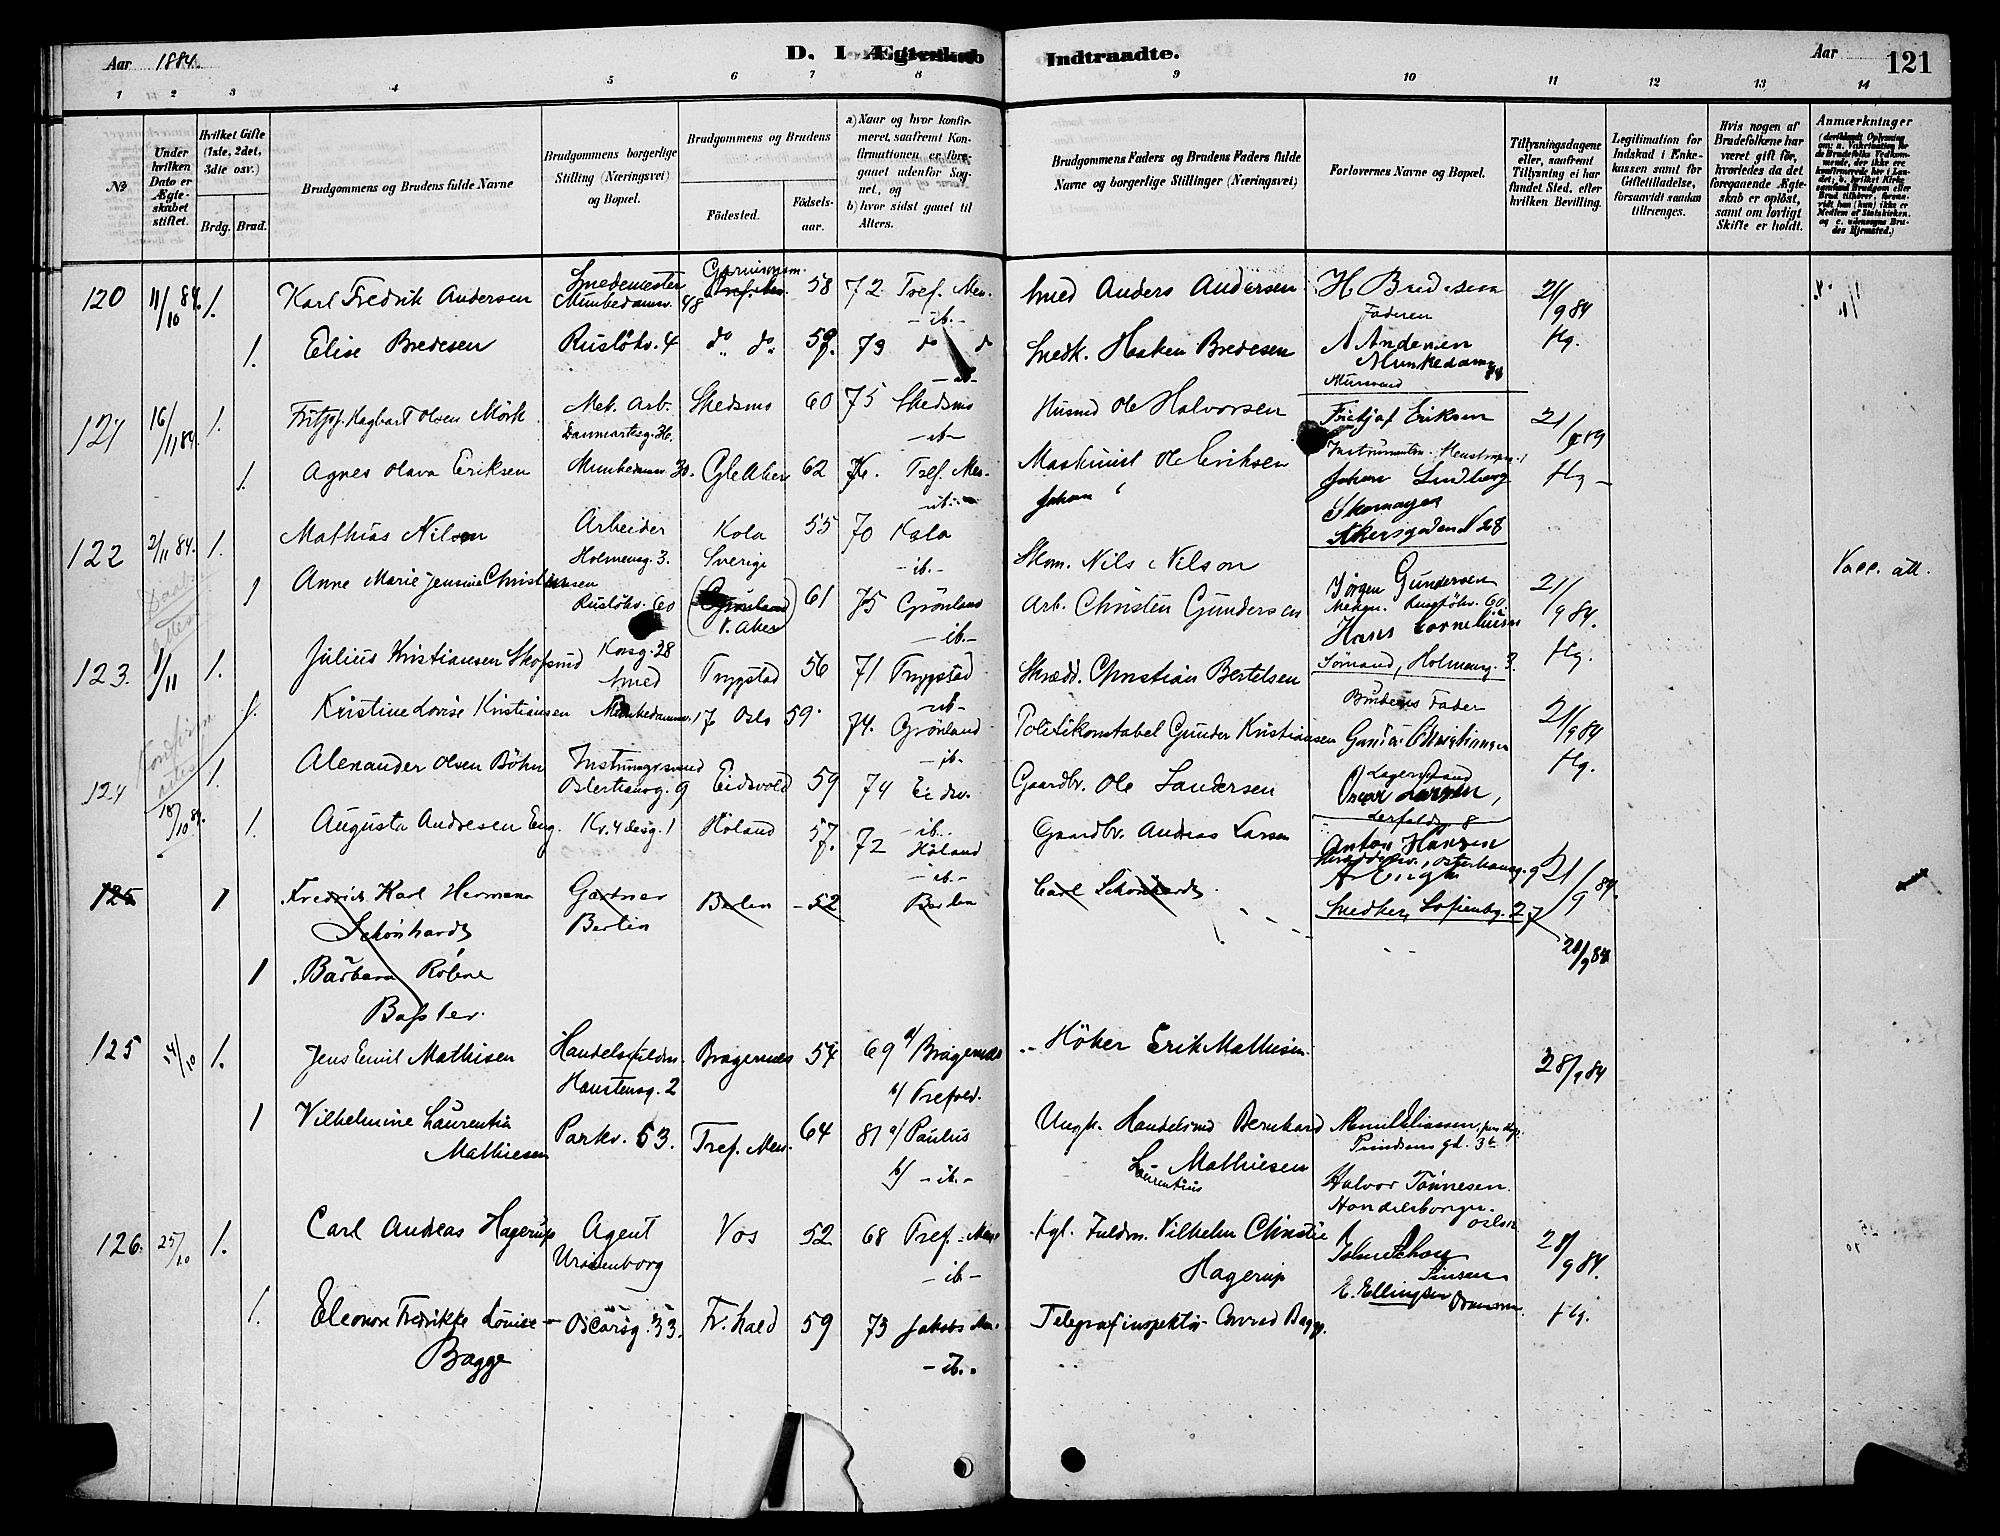 Aar 1884. D. I Ægteskab Indtraadte. Aar 121
1 2 3 4 5 6 7 8 9 10 11 12 13 14
№
Under hvilken Dato er Ægteskabet stiftet.
Hvilket Gifte (1ste, 2det, 3die osv.)
Brdg. Brud.
Brudgommens og Brudens fulde Navne
Brudgommens borgerlige Stilling (Næringsvei) og Bopæl.
Brudgommens og Brudens
Födested. Födsels-aar.
a) Naar og hvor konfirmeret, saafremt Konfirmationen er foregaaet udenfor Sognet, og
b) hvor sidst gaaet til Alters.
Brudgommens Faders og Brudens Faders fulde Navne og borgerlige Stillinger (Næringsvei)
Forlovernes Navne og Bopæl.
Tillysningsdagene eller, saafremt Tillysning ei har fundet Sted, efter hvilken Bevilling.
Legitimation for Indskud i Enkekassen samt for Giftetilladelse, forsaavidt saadan tiltrænges.
Hvis nogen af Brudefolkene har været gift för, hvorledes da det foregaaende Ægteskab er oplöst, samt om lovligt Skifte er holdt.
Anmærkninger
120 11/10 84. 1. Karl Fredrik Andersen Smedemester Munkedamsv. 48 Garnisonsm. 58 72 Tref. Men. Smed Anders Andersen H Bredesen 21/9 84
-ib.- Faderen
1. Elise Bredesen Ruslökv. 4 do do 59 73 do d Snedk. Haaken Bredesen A Andersen Hg.
Munkedamsv
-ib-
121 16/11 84. 1. Fritjof Hagbart Olsen Mörk Mek. Arb. Danmarksg. 36. Skedsmo 60 75 Skedsmo Husmd Ole Halvorsen Fritjof Eriksen 21/9 84
-ib-
1. Agnes Olava Eriksen Munkedamsv. 30. Gle Aker 62 76. Tref. Men. Maskinist Ole Eriksen Johan Lindberg Hg
-ib.- Johan Skomager
Akersgaden N 28
122 2/11 84. 1. Mathias Nilsen Arbeider Holmensg. 3. Kola Sverige 55 70 Kola Skom. Nils Nilson
-ib.- Vacc. att.
1 Anne Marie Jensine Christiansen Ruslökv. 60 (Grönland V. Aker) 61 75 Grönland Arb. Christen Gundersen Jörgen Gundersen 21/9 84.
-ib.- Hans Cornelius
Daab attes Sömand, Holmensg. 3. Hg.
123. 1/11 1. Julius Kristiansen Skofsrud Korsg. 28 Smed Trygstad 56 71 Trygstad Skrædd. Christian Bertelsen Brudens Fader
-ib-
1. Kristine Lovise Kristiansen Munkedamsv. 17 Oslo 59. 74. Grönland Politikonstabel Gunder Kristiansen Gunder Christiansen 21/9 84
-ib- Hg.
Konfirm attes
124 18/10 84. 1. Alexander Olsen Böhn Osterhausg. 9 Eidsvold 59 74 Eidsv. Gaardbr. Ole Landersen Oscar Larsen,
-ib.-
1. Augusta Andresen Eng. Kr. 4 desg. 1 Höland 57. 72 Höland Gaardbr. Andreas Larsen Anton Hansen 21/9 84.
-ib.- Osterhausg. 9
125 1 Fredrich Karl Hermann Schönhardt Gartner Berlin Berlin - 52 Berlin Carl Schönhardt Snedker, Sofienbg. 27
28/9 84
1 Barbara Rosine Bassler.
125 14/10 1. Jens Emil Mathisen Handelsfuldm. Haustensg. 2 Bragernæs 54 69 a/ Bragernæs Höker Erik Mathisen. 28/9 84
b/ Trefold.
1 Vilhelmine Laurentia Mathiesen Parkv. 53. Tref. Men. 64 81 a/ Paulus Ungk. Handelsmd Bernhard Emil Eliassen
b/ -ib.- Laurentius Mathiesen Prindsens gd. 3b
Halvor Tönnesen.
Handelsborger. Oslo
126. 25/10 1. Carl Andreas Hagerup Agent Uranienborg Vos 52 68 Tref. Men. kgl. Fuldm. Vilhelm Christie Hagerup 28/9 84.
-ib-
E. Ellingsen
1. Eleonore Fredrikke Louise Bagge Oscarsg. 33. Fr.hald 59 73 Jakobs Men. Telegrafinspektör Conrad Bagge. Hg.
-ib.-